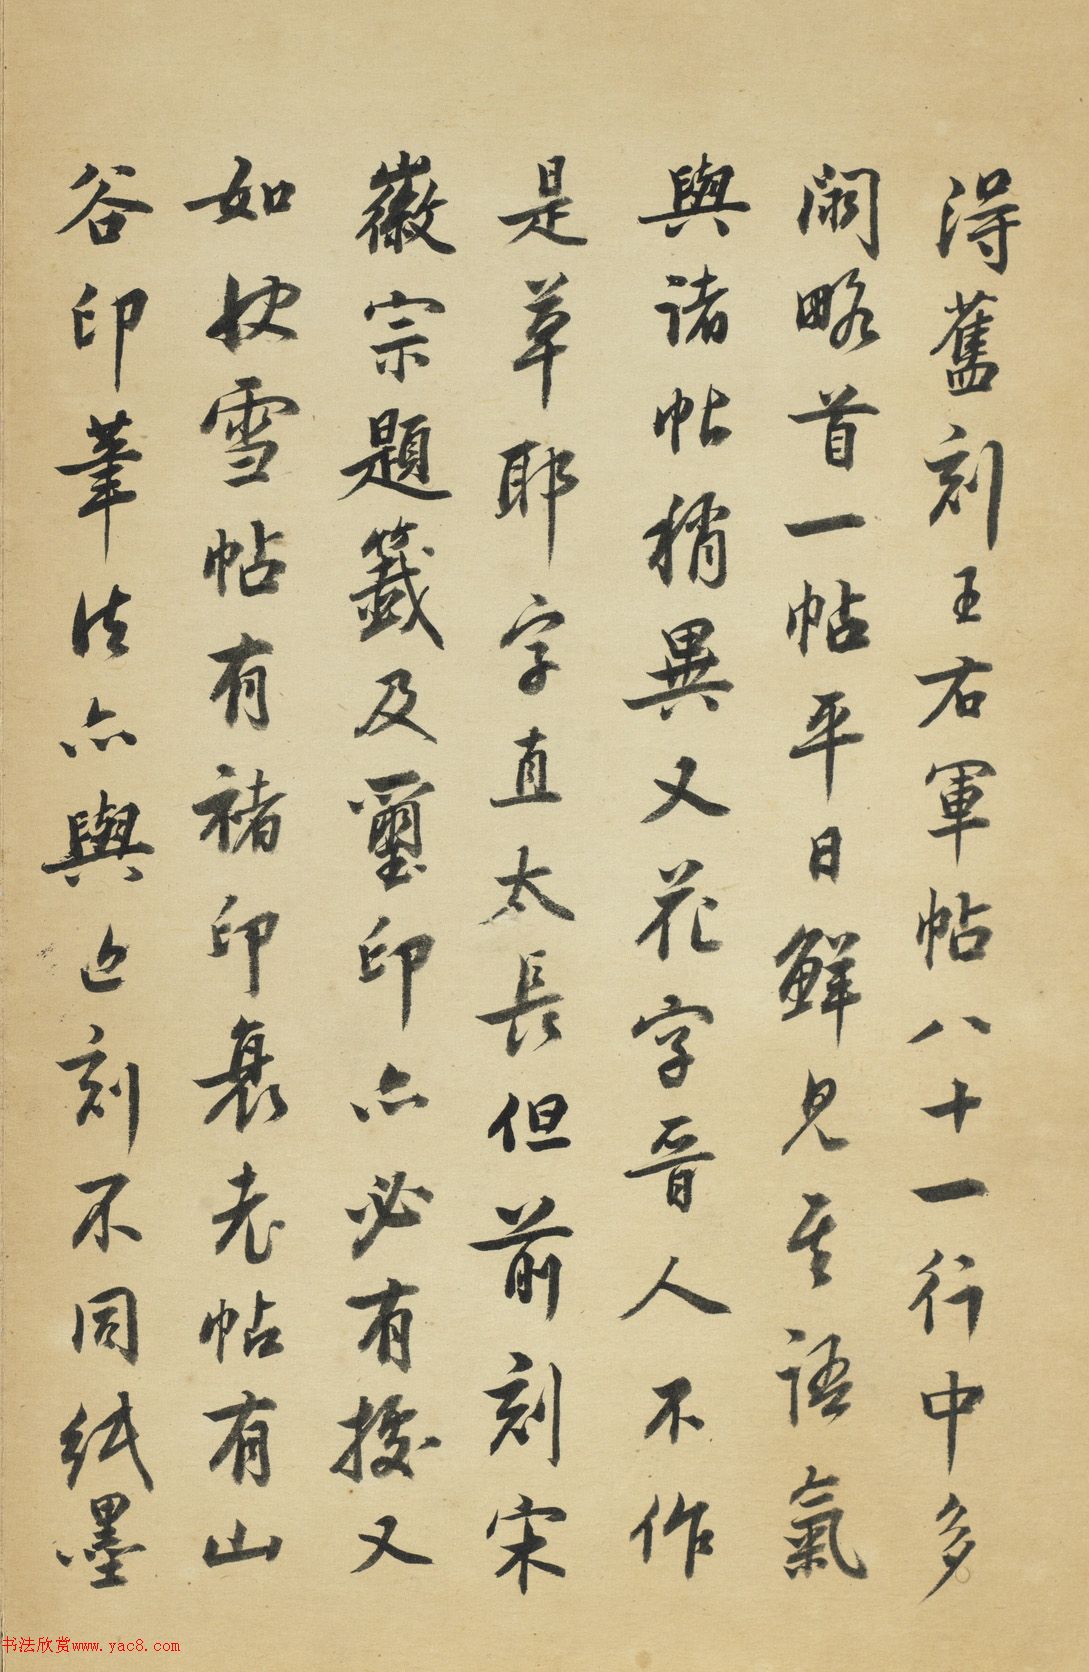 淂舊刻王右軍帖八十一行中多
闕略首一帖平日鮮見其語氣
與諸帖稍異又花字晉人不作
是草耶字直太長但前刻宋
徽宗題籤及璽印亦必有據又
如快雪帖有褚印衰老帖有山
谷印筆法亦與近刻不同紙墨
书法欣赏www.yac8.com